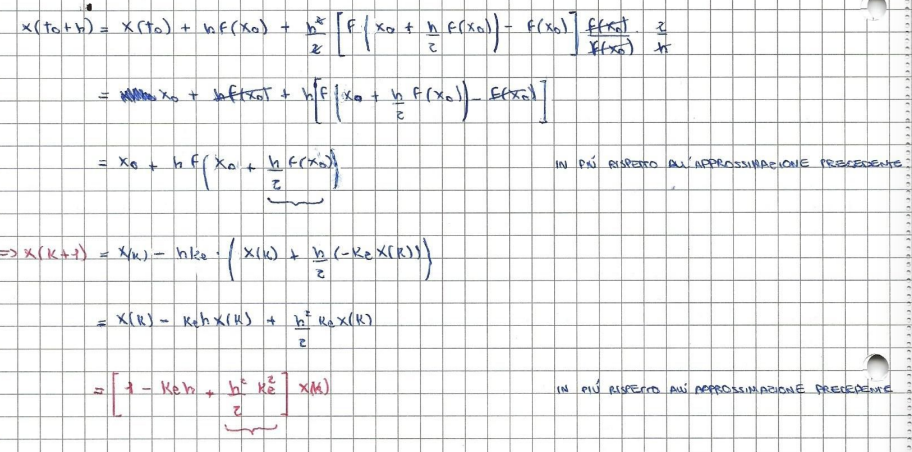 x(t₀+h) = x(t₀) + h f(x₀) + h²/2 [ f ( x₀ + h/2 f(x₀) ) - f(x₀) ] f(x₀)/f(x₀) · 2/h
= x₀ + h f(x₀) + h [ f ( x₀ + h/2 f(x₀) ) - f(x₀) ]
= x₀ + h f ( x₀ + h/2 f(x₀) ) IN PIÚ RISPETTO ALL'APPROSSIMAZIONE PRECEDENTE
=> x(k+1) = x(k) - hke · ( x(k) + h/2 (-ke x(k)) )
= x(k) - keh x(k) + h²/2 ke x(k)
= [ 1 - keh + h²/2 ke² ] x(k) IN PIÚ RISPETTO ALL'APPROSSIMAZIONE PRECEDENTE